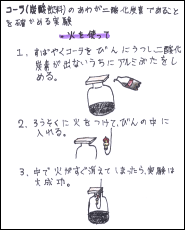 コーラ(炭酸飲料)のあわが二酸化炭素であること
を確かめる実験
火を使って
1. すばやくコーラをびんにうつし、二酸化
炭素が出ないうちにアルミぶたをし
める。
2. ろうそくに火をつけて、びんの中に
入れる。
3. 中で火がすぐ消えてしまったら、実験は
大成功。